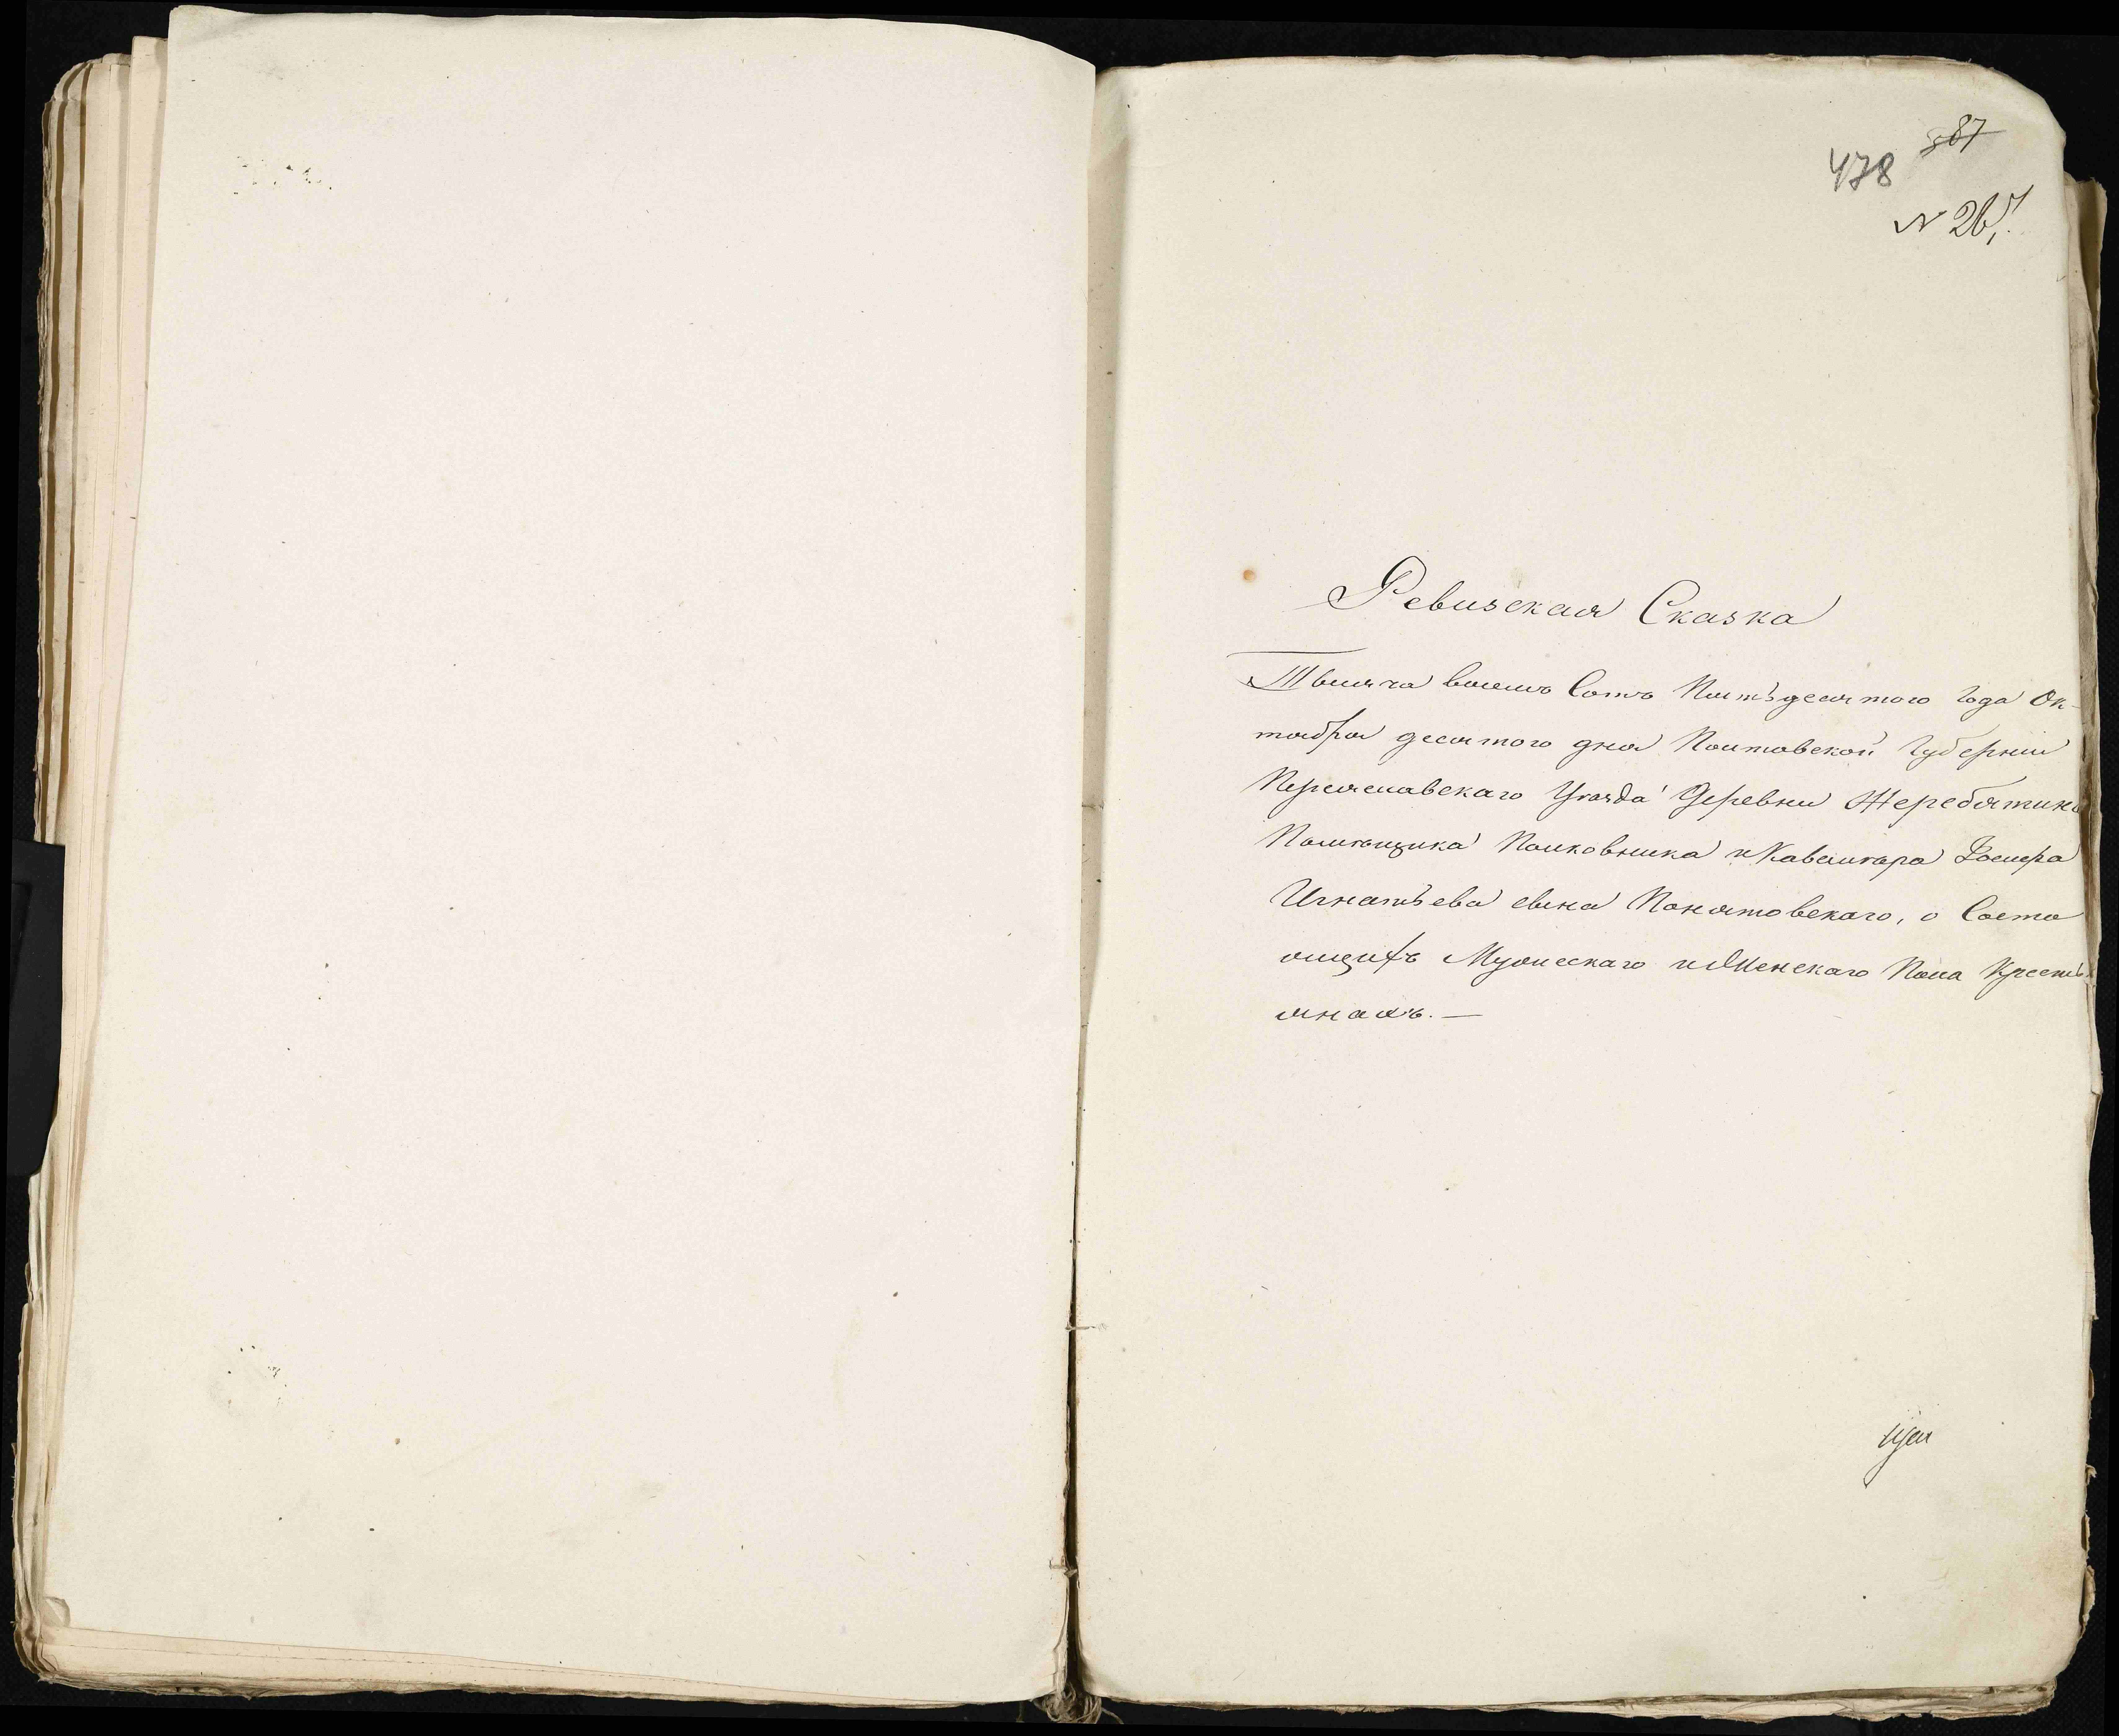 587
478
N 267.
Ревизская Сказка
Тысяча восемь Сотъ Пятьдесятого года Ок-
тября десятого дня Полтавской Губернии
Переяславскаго Уѣзда Деревни Жеребятина
Помѣщика Полковника и Кавалѣра
Игнатьева сына Понятовскаго, о Состо
ящихъ Мужескаго и Женскаго Пола Кресть
янахъ. —